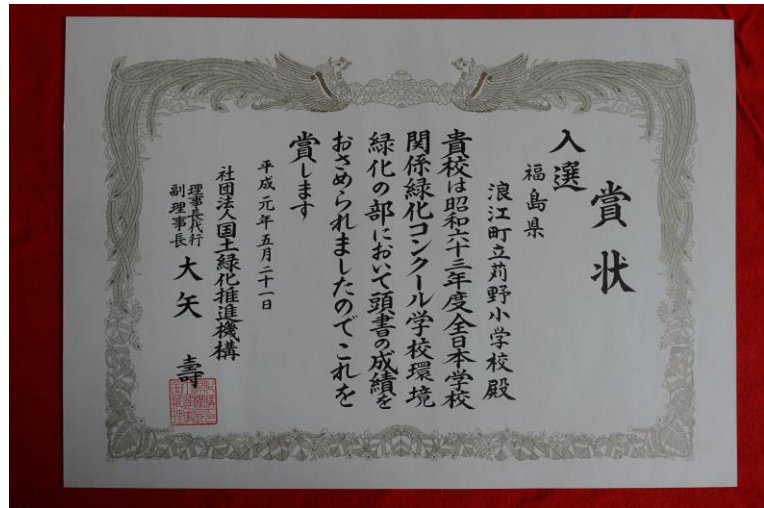 賞状
入選
福島県
浪江町立苅野小学校殿
貴校は昭和六十三年度全日本学校
関係緑化コンクール学校環境
緑化の部において頭書の成績を
おさめられましたのでこれを
賞します
平成元年五月二十一日
社団法人国土緑化推進機構
理事長代行
副理事長
大矢壽